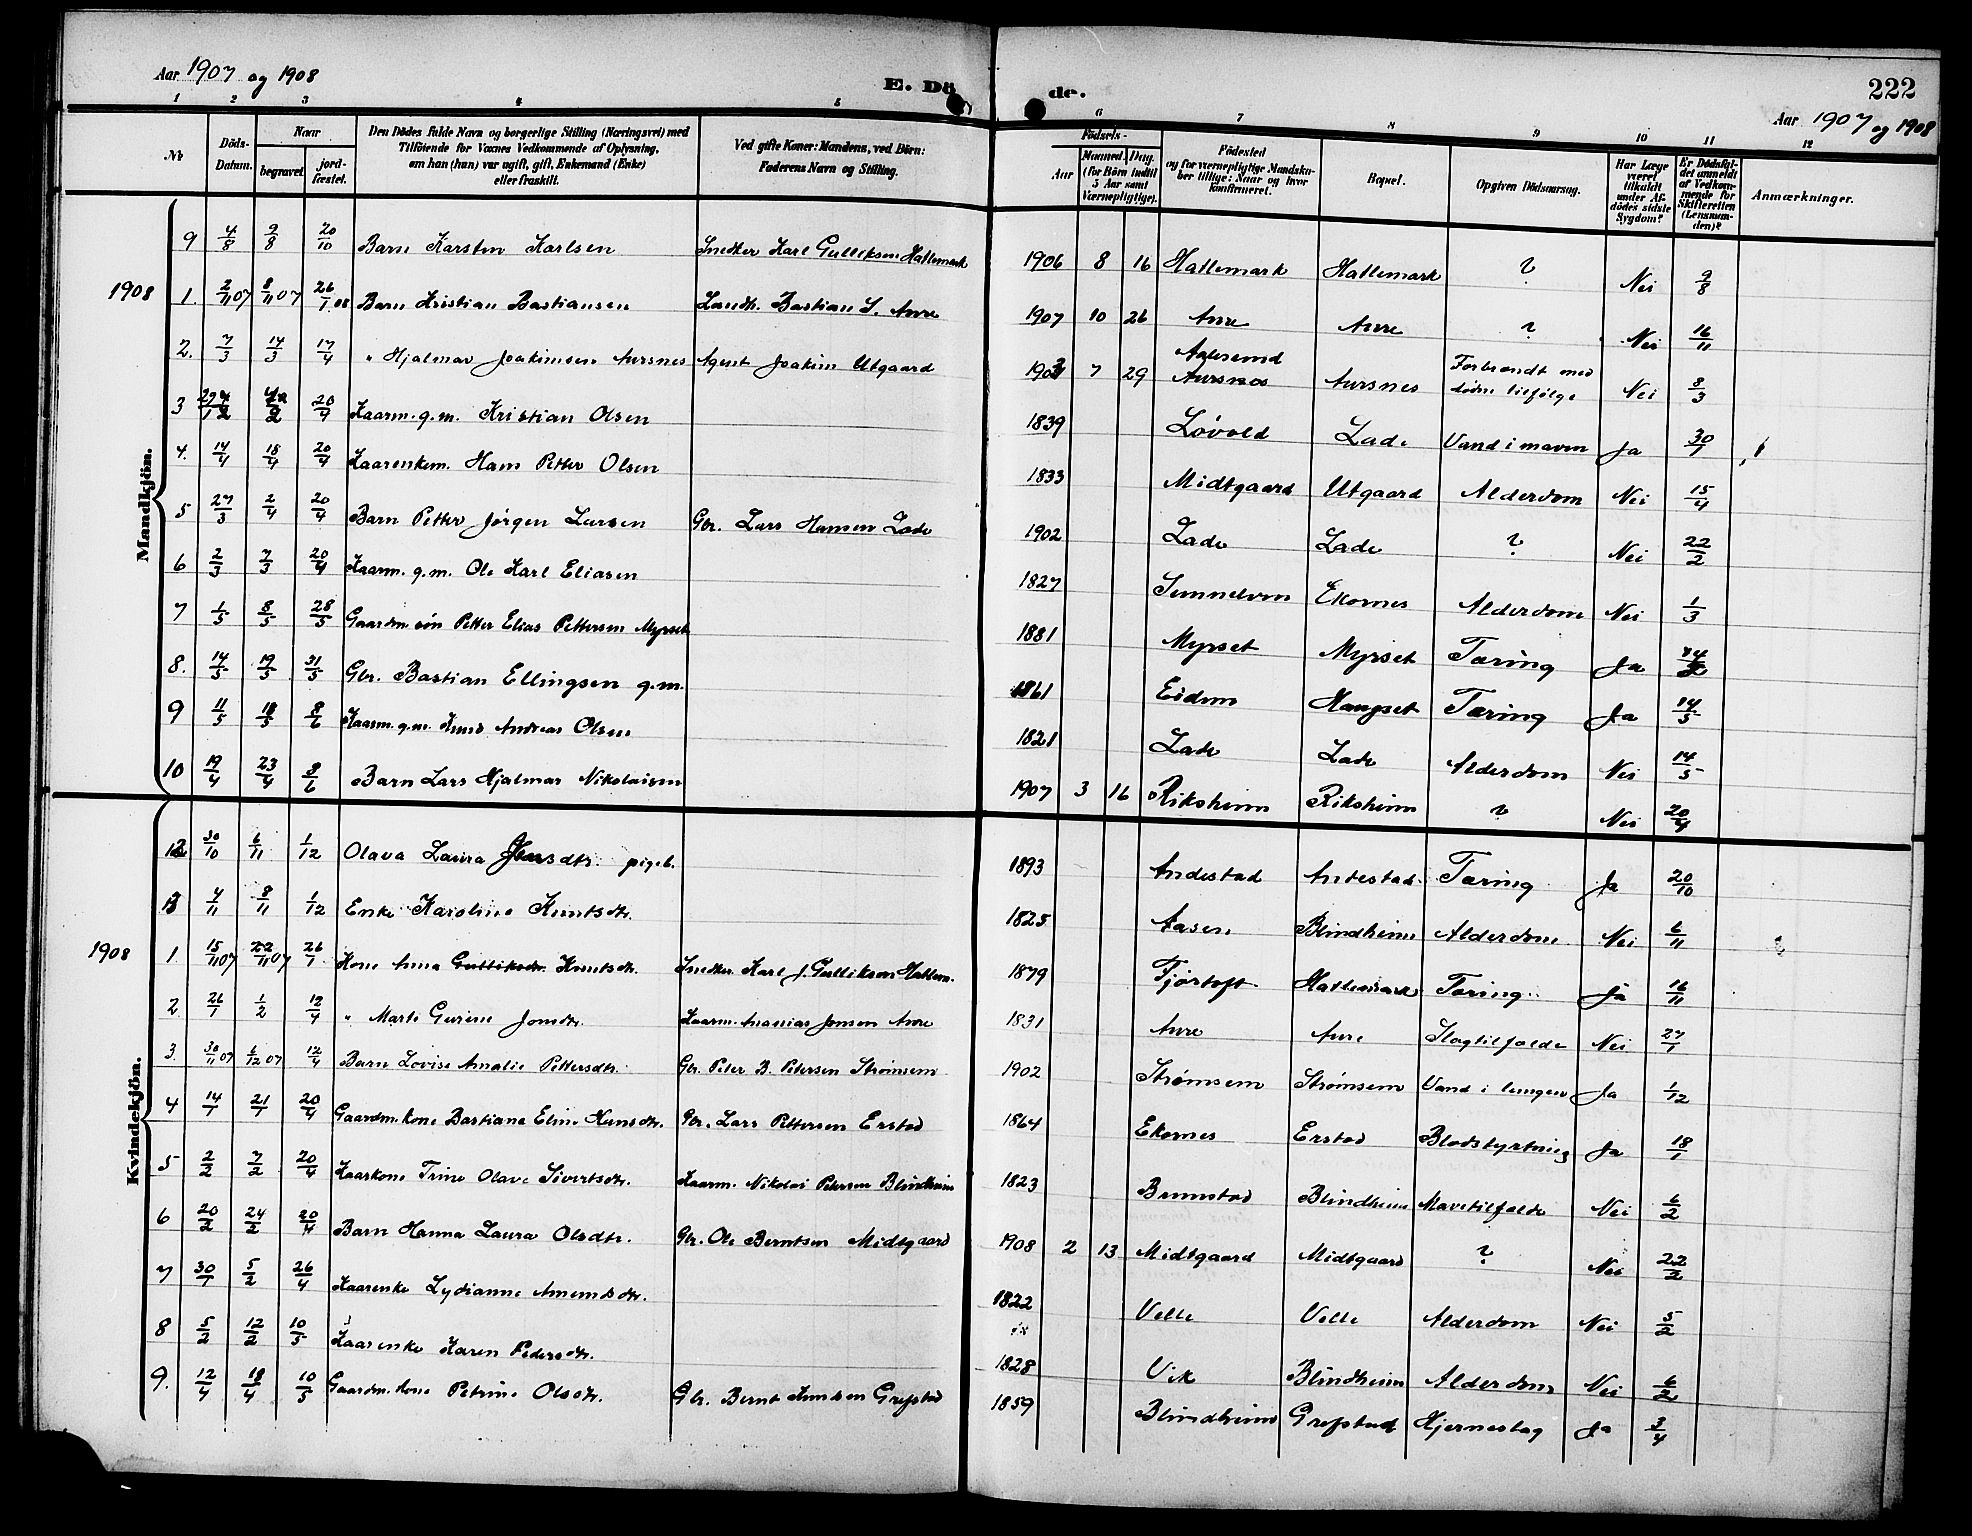 Aar 1907 og 1908
E. Döde.
222
Aar 1907 og 1908
1 2 3 4 5 6 7 8 9 10 11 12
No
Döds-Datum.
Naar
begravet.
jordfæstet.
Den Dödes fulde Navn og borgerlige Stilling (Næringsvei) med
Tilföiende for Voxnes Vedkommende af Oplysning,
om han (hun) var ugift, gift, Enkemand (Enke)
eller fraskilt.
Ved gifte Koner: Mandens, ved Börn:
Faderens Navn og Stilling.
Födsels-
Aar
Maaned. Dag.
(for Börn indtil 5 Aar samt Værnepligtige).
Födested
og for værnepligtige Mandskaber tillige: Naar og hvor konfirmeret.
Bopæl.
Opgiven Dödsaarsag.
Har Læge været tilkaldt under Afdödes sidste Sygdom?
Er Dödsfaldet anmeldt af Vedkommende for Skifteretten (Lensmanden)?
Anmærkninger.
Mandkjön.
9 4/8 9/8 20/10 Barn Karsten Karlsen Snedker Karl Gulliksen Hattemark 1906 8 16 Hattemark Hattemark ? Nei 9/8
1908 1. 2/11 07 8/11 07 26/1 08 Barn Kristian Bastiansen Landh. Bastian S. Aure 1907 10 26 Aure Aure ? Nei 16/11
2. 7/3 14/3 17/4 " Hjalmar Joakimsen Aursnes Agent Joakim Utgaard 7 29 Aalesund Aursnes Aursnes Forbrændt med døden tilfølge Nei 8/3
3 20/4 Kaarm. g.m. Kristian Olsen 1839 Løvold Lade Vand i maven Ja 30/1
4. 14/4 18/4 20/4 Kaarenkem. Hans Petter Olsen 1833 Midtgaard Utgaard Alderdom Nei 15/4
5 27/3 2/4 20/4 Barn Petter Jørgen Larsen Gbr. Lars Hansen Lade 1902 Lade Lade ? Nei 22/2
6 2/3 7/3 20/4 Kaarm. g.m. Ole Karl Eliasen 1827 Sunnelven Ekornes Alderdom Nei 1/3
7 1/5 8/5 28/5 Gaardm. søn Petter Elias Pettersen Myrset 1881 Myrset Myrset Tæring Ja
8. 14/5 19/5 31/5 Gbr. Bastian Ellingsen g.m. 1861 Eidem Haugset Tæring Ja 14/5
9 11/5 18/5 8/6 Kaarm. g.m. Knud Andreas Olsen 1821 Lade Lade Alderdom Nei 14/5
10 19/4 23/4 8/6 Barn Lars Hjalmar Nikolaisen 1907 3 16 Riksheim Riksheim ? Nei 20/4
Kvindekjön.
12 30/10 6/11 1/12 Olava Laura pigeb. 1893 Andestad Andestad Tæring Ja 20/10
13 4/11 8/11 1/12 Enke Karoline Knutsdtr. 1825 Aasen Blindheim Alderdom Nei 6/11
1908 1 15/11 07 22/11 07 26/1 Kone Anna Gulliksdtr. Knutsdtr. Snedker Karl J. Gulliksen Hattem. 1879 Fjørtoft Hattemark Tæring Ja 16/11
2 26/1 1/2 12/4 " Marte Gurine Jonsdtr. Kaarm. Ananias Jonsen Aure 1831 Aure Aure Slagtilfælde Nei 27/1
3. 30/11 07 6/12 07 12/4 Barn Lovise Amalie Pettersdtr. Gbr. Peter B. Petersen Strømsem 1902 Strømsem Strømsem Vand i lungen Ja 1/12
4 14/1 21/1 20/4 Gaardm. kone Bastiane Eline Hansdtr. Gbr. Lars Pettersen Erstad 1864 Ekornes Erstad Blodstyrtning Ja 18/1
5 2/2 7/2 20/4 Kaarkone Trine Olave Sivertsdtr. Kaarm. Nikolai Petersen Blindheim 1823 Brunstad Blindheim Mavetilfælde Nei 6/2
6 20/2 24/2 20/4 Barn Hanna Laura Olsdtr. Gbr. Ole Berntsen Midtgaard 1908 2 13 Midtgaard Midtgaard ? Nei 22/2
7 30/1 5/2 26/4 Kaarenke Lydianne Amundsdtr. 1822 Velle Velle Alderdom Nei 5/2
8 5/2 12/2 10/5 Kaarenke Karen Pedersdtr. 1828 Vik Blindheim Alderdom Nei 6/2
9. 12/4 18/4 10/5 Gaardm. kone Petrine Olsdtr. Gbr. Bernt Knudsen Grefstad 1859 Blindheim Grefstad Hjerneslag Ja 3/4